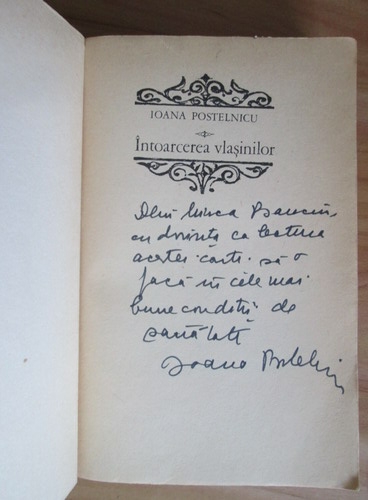 IOANA POSTELNICU
Întoarcerea vlașinilor
cu dorința ca lectura
acestei cărți să o
facă în cele mai
bune condiții de
sănătate
Ioana Postelnicu